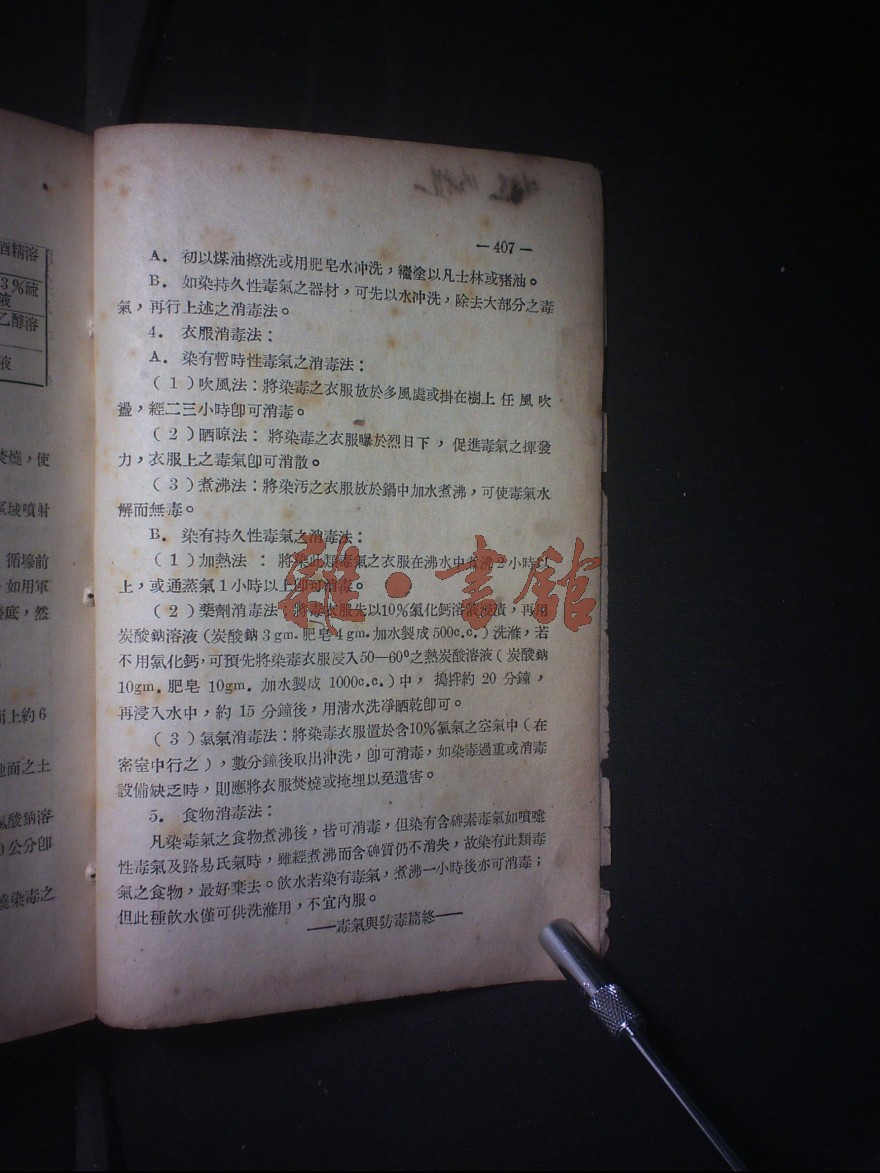 酒精溶
3%硫
液
乙醇溶
液
焚燒，使
域噴射
循壕前
如用軍
底，然
面上約6
地面之土
氯酸鈉溶
0公分卽
燒染毒之
—407—
A． 初以煤油擦洗或用肥皂水冲洗，繼塗以凡士林或猪油。
B． 如染持久性毒氣之器材，可先以水冲洗，除去大部分之毒
氣，再行上述之消毒法。
4． 衣服消毒法：
A． 染有暫時性毒氣之消毒法：
（1）吹風法：將染毒之衣服放於多風處或掛在樹上任風吹
盪，經二三小時卽可消毒。
（2）晒晾法：將染毒之衣服曝於烈日下，促進毒氣之揮發
力，衣服上之毒氣卽可消散。
（3）煮沸法：將染汚之衣服放於鍋中加水煮沸，可使毒氣水
解而無毒。
B． 染有持久性毒氣之消毒法：
（1）加熱法：將染此類毒氣之衣服在沸水中煮沸2小時以
上，或通蒸氣1小時以上卽可消毒。
（2）藥劑消毒法：將毒衣服先以10%氯化鈣溶液浸漬，再用
炭酸鈉溶液（炭酸鈉3gm．肥皂4gm．加水製成500c.c.）洗滌，若
不用氯化鈣，可預先將染毒衣服浸入50—60°之熱炭酸溶液（炭酸鈉
10gm．肥皂 10gm．加水製成 1000c.c.）中，搗拌約 20 分鐘，
再浸入水中，約 15 分鐘後，用清水洗凈晒乾卽可。
（3）氯氣消毒法：將染毒衣服置於含10%氯氣之空氣中（在
密室中行之），數分鐘後取出冲洗，卽可消毒，如染毒過重或消毒
設備缺乏時，則應將衣服焚燒或掩埋以免遺害。
5． 食物消毒法：
凡染毒氣之食物煮沸後，皆可消毒，但染有含砷素毒氣如噴嚏
性毒氣及路易氏氣時，雖經煮沸而含砷質仍不消失，故染有此類毒
氣之食物，最好棄去。飲水若染有毒氣，煮沸一小時後亦可消毒；
但此種飲水僅可供洗滌用，不宜內服。
——毒氣與防毒篇終——
雜·書館